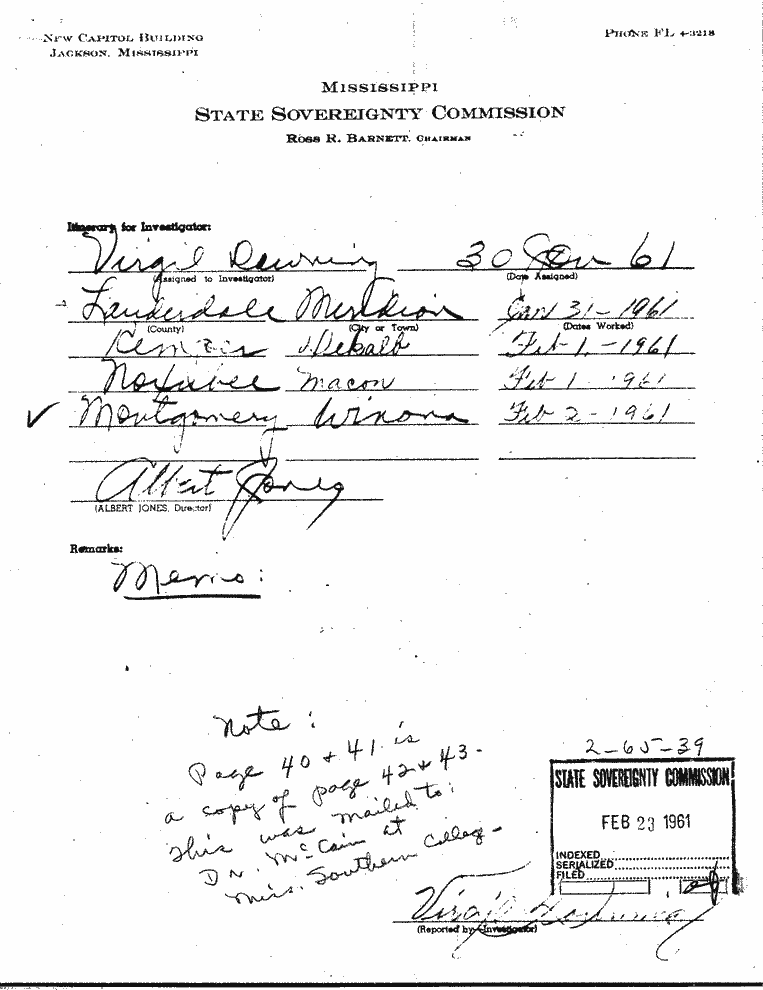 NEW CAPITOL BUILDING
JACKSON, MISSISSIPPI
PHONE FL 4-3218
MISSISSIPPI
STATE SOVEREIGNTY COMMISSION
ROSS R. BARNETT, CHAIRMAN
Itinerary for Investigator:
Virgil Downing 30 Jan 61
(Assigned to Investigator) (Date Assigned)
Lauderdale Meridian Jan 31-1961
(County) (City or Town) (Dates Worked)
Kemper Dekalb Feb 1,-1961
Noxubee Macon Feb 1-1961
✓ Montgomery Winona Feb 2-1961
Albert Jones
(ALBERT JONES, Director)
Remarks:
Memo:
Note:
Page 40 + 41 is
a copy of page 42 + 43-
This was mailed to:
Dr. McCain at
Miss. Southern Colleg-
2-65-39
STATE SOVEREIGNTY COMMISSION
FEB 23 1961
INDEXED
SERIALIZED
FILED
Virgil Downing
(Reported by-Investigator)